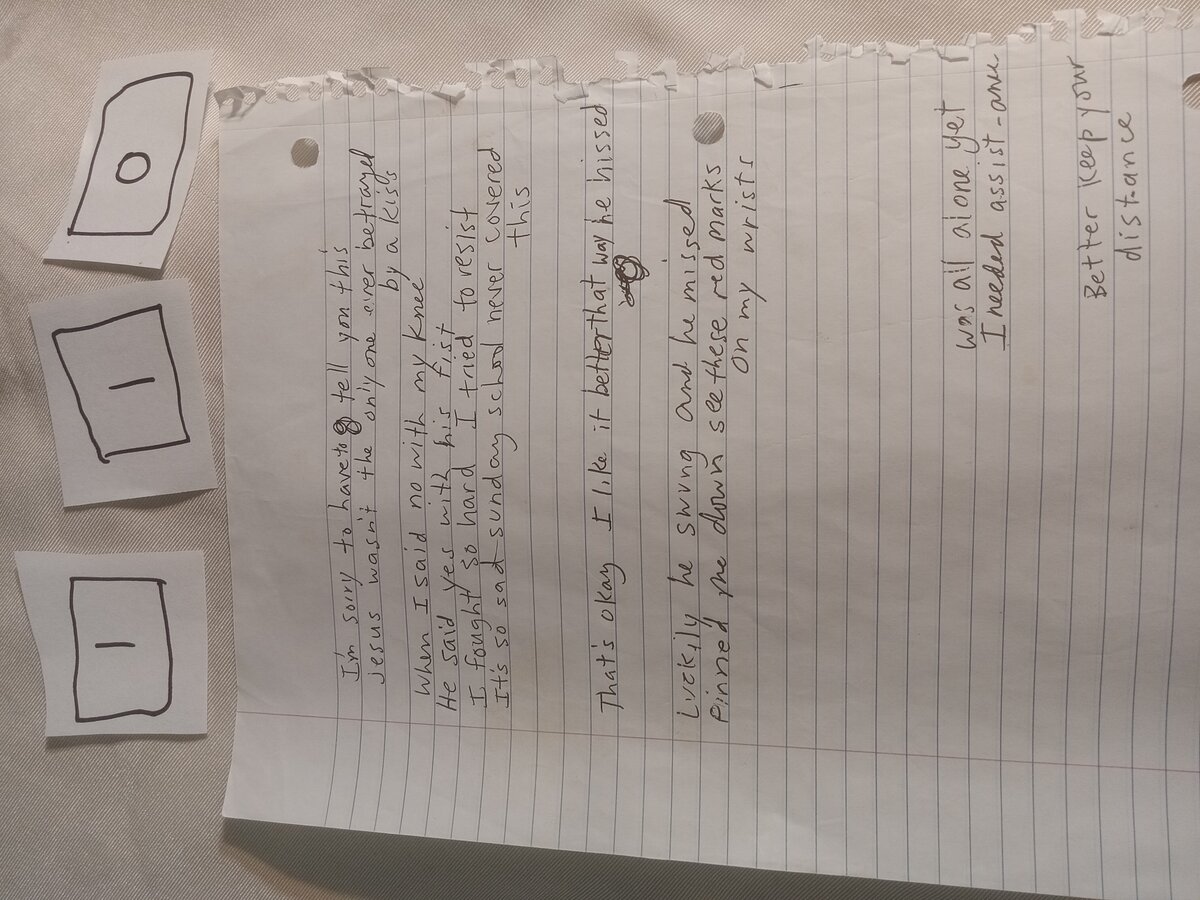 1 1 0
I'm sorry to have to tell you this
jesus wasn't the only one ever betrayed
by a kiss
When I said no with my knee
He said yes with his fist
I fought so hard I tried to resist
It's so sad sunday school never covered
this
That's okay I like it better that way he hissed
Luckily he swung and he missed
Pinned me down see these red marks
on my wrists
was all alone yet
I needed assist-ance
Better keep your
dist-ance